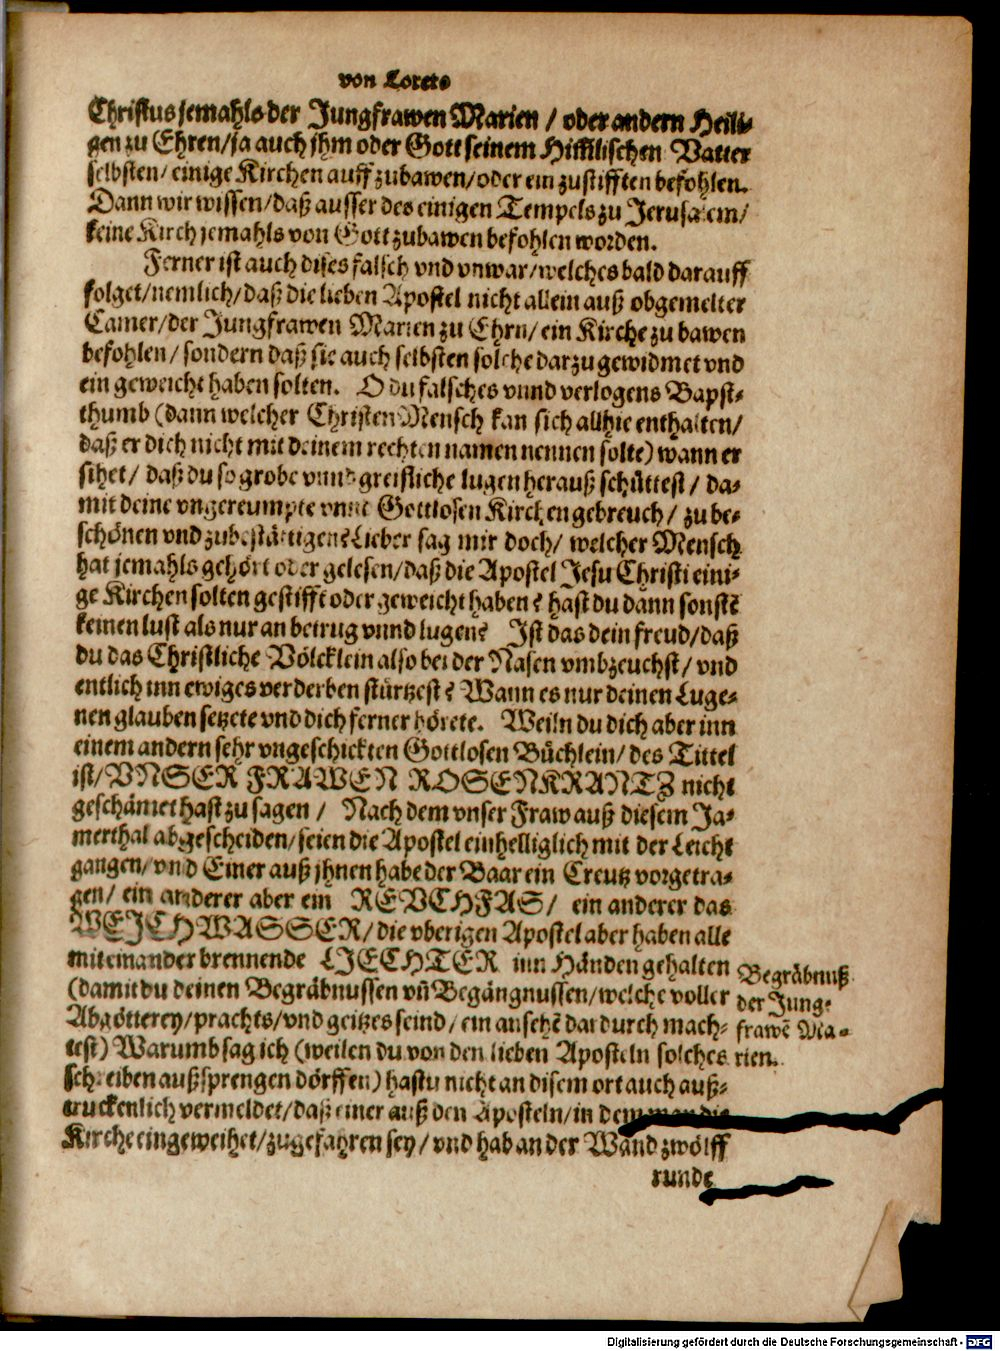 von Loreto
Christus jemahls der Jungfrawen Marien / oder andern Heili-
gen zu Ehren/ja auch jhm oder Gott seinem Himmlischen Vatter
selbsten/ einige Kirchen auff zubawen/oder ein zustifften befohlen.
Dann wir wissen/daß ausser des einigen Tempels zu Jerusalem/
keine Kirch jemahls von Gott zubawen befohlen worden.
Ferner ist auch dises falsch vnd vnwar/welches bald darauff
folget/nemlich/daß die lieben Apostel nicht allein auß obgemelter
Camer/der Jungfrawen Marien zu Ehrn/ ein Kirche zu bawen
befohlen/ sondern daß sie auch selbsten solche darzu gewidmet vnd
ein geweicht haben solten. O du falsches vnnd verlogens Bapst-
thumb (dann welcher Christen Mensch kan sich allhie enthalten/
daß er dich nicht mit deinem rechten namen nennen solte) wann er
sihet/ daß du so grobe vnnd greifliche lugen herauß schüttest/ da-
mit deine vngereumpte vnnd Gottlosen Kirchengebreuch/ zu be-
schönen vnd zubestättigen? Lieber sag mir doch/ welcher Mensch
hat jemahls gehört oder gelesen/daß die Apostel Jesu Christi eini-
ge Kirchen solten gestifft oder geweicht haben? hast du dann sonstē
keinen lust als nur an betrug vnnd lugen? Ist das dein freud/daß
du das Christliche Völcklein also bei der Nasen vmbzeuchst/ vnd
entlich inn ewiges verderben stürtzest? Wann es nur deinen Luge-
nen glauben setzete vnd dich ferner hörete. Weiln du dich aber inn
einem andern sehr vngeschickten Gottlosen Büchlein/ des Tittel
ist/ VNSER FRAWEN ROSENKRANTZ nicht
geschämet hast zu sagen / Nach dem vnser Fraw auß diesem Ja-
merthal abgescheiden/seien die Apostel einhelliglich mit der Leicht
gangen/ vnd Einer auß jhnen habe der Baar ein Creutz vorgetra-
gen/ ein anderer aber ein REVCHFAS/ ein anderer das
WEICHWASSER/ die vberigen Apostel aber haben alle
miteinander brennende LJECHTER inn Händen gehalten
(damit du deinen Begräbnussen vñ Begängnussen/welche voller
Abgötterey/prachts/vnd geitzes seind/ ein ansehē dardurch mach-
test) Warumb sag ich (weilen du von den lieben Aposteln solches
schreiben außsprengen dörffen) hastu nicht an disem ort auch auß-
truckenlich vermeldet/daß einer auß den Aposteln/in dem man die
Kirche eingeweihet/zugefahren sey/ vnd hab an der Wand zwölff
runde
Begräbnuß
der Jung-
frawē Ma-
rien.
Digitalisierung gefördert durch die Deutsche Forschungsgemeinschaft - DFG